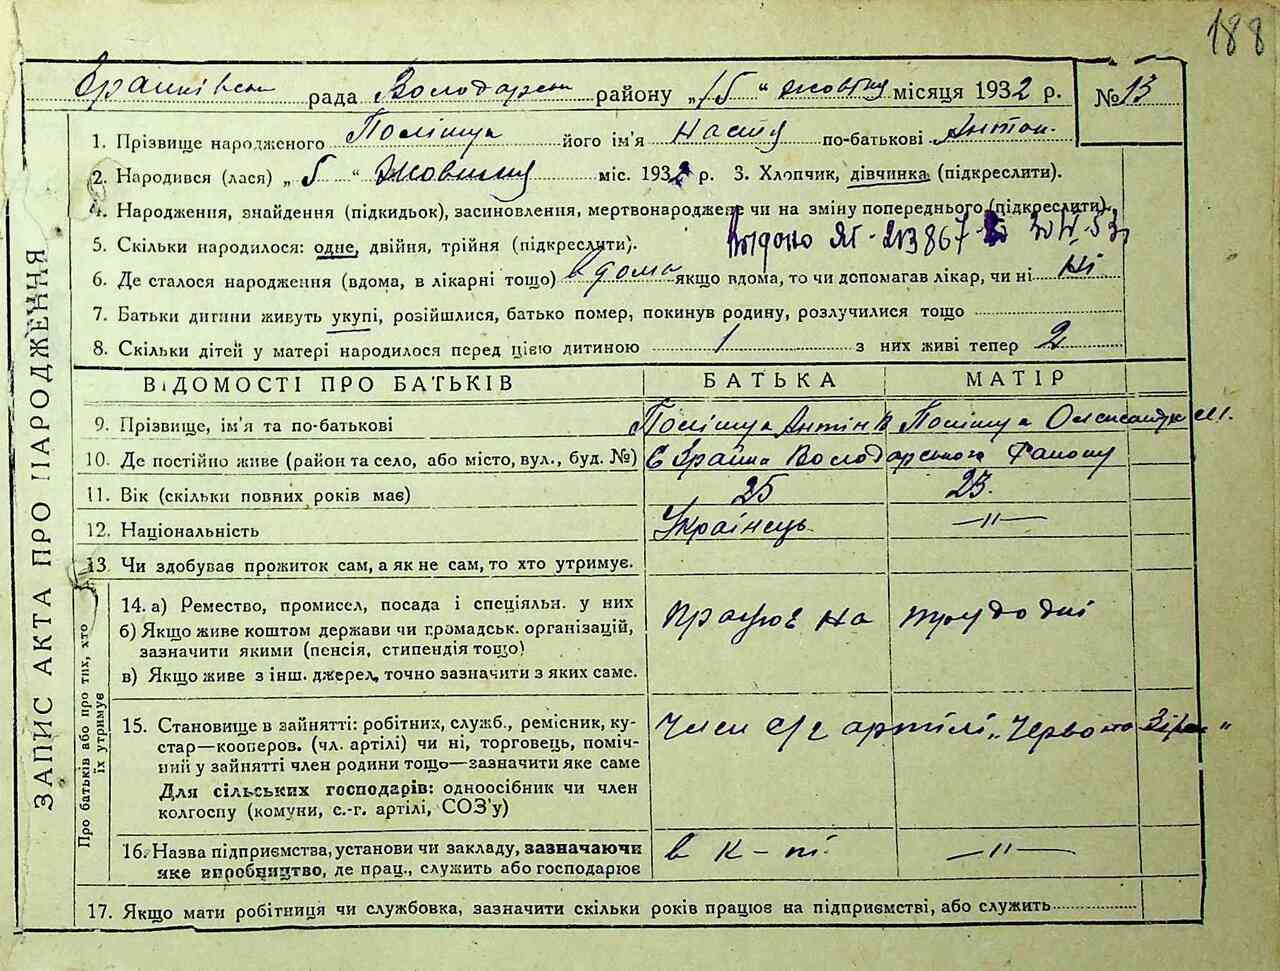 188
рада Володарськ району „15" жовтня місяця 1932 р. № 13
1. Прізвище народженого Поліщук його ім'я Настя по-батькові Антон.
2. Народився (лася) „5" Жовтня міс. 1932 р. 3. Хлопчик, дівчинка (підкреслити).
4. Народження, знайдення (підкидьок), засиновлення, мертвонароджене чи на зміну попереднього (підкреслити).
5. Скільки народилося: одне, двійня, трійня (підкреслити). Видано ЯГ-213867
6. Де сталося народження (вдома, в лікарні тощо) вдома якщо вдома, то чи допомагав лікар, чи ні Ні
7. Батьки дитини живуть укупі, розійшлися, батько помер, покинув родину, розлучилися тощо
8. Скільки дітей у матері народилося перед цією дитиною 1 з них живі тепер 2
ВІДОМОСТІ ПРО БАТЬКІВ БАТЬКА МАТІР
9. Прізвище, ім'я та по-батькові Поліщук Антін В Поліщук Олександра М.
10. Де постійно живе (район та село, або місто, вул., буд. №) Володарського району
11. Вік (скільки повних років має) 25 23.
12. Національність Українець —"—
13. Чи здобуває прожиток сам, а як не сам, то хто утримує.
14. а) Ремество, промисел, посада і спеціяльн. у них
б) Якщо живе коштом держави чи громадськ. організацій,
зазначити якими (пенсія, стипендія тощо)
в) Якщо живе з інш. джерел, точно зазначити з яких саме.
Працює на трудодні
15. Становище в зайнятті: робітник, служб., ремісник, ку-
стар—кооперов. (чл. артілі) чи ні, торговець, поміч-
ний у зайнятті член родини тощо—зазначити яке саме
Для сільських господарів: одноосібник чи член
колгоспу (комуни, с.-г. артілі, СОЗ'у)
Член с/г артілі „Червона Зірка"
16. Назва підприємства, установи чи закладу, зазначаючи
яке виробництво, де прац., служить або господарює
в к-пі —"—
17. Якщо мати робітниця чи службовка, зазначити скільки років працює на підприємстві, або служить
ЗАПИС АКТА ПРО НАРОДЖЕННЯ
Про батьків або про тих, хто
їх утримує